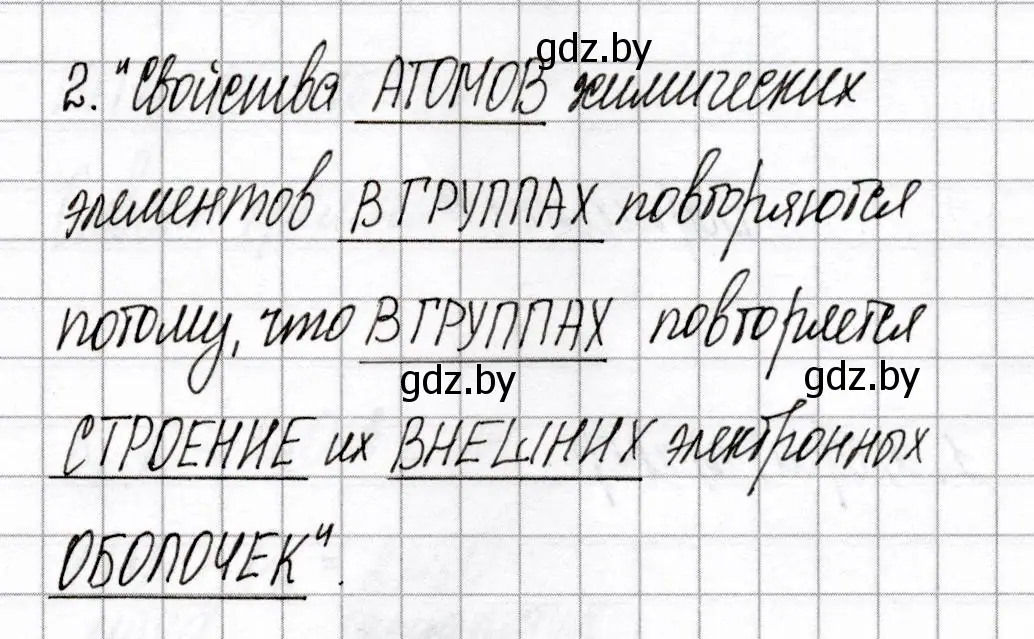 gdz.by
2. "Свойства АТОМОВ химических
элементов В ГРУППАХ повторяются
потому, что В ГРУППАХ повторяется
gdz.by gdz.by
СТРОЕНИЕ их ВНЕШНИХ электронных
ОБОЛОЧЕК".